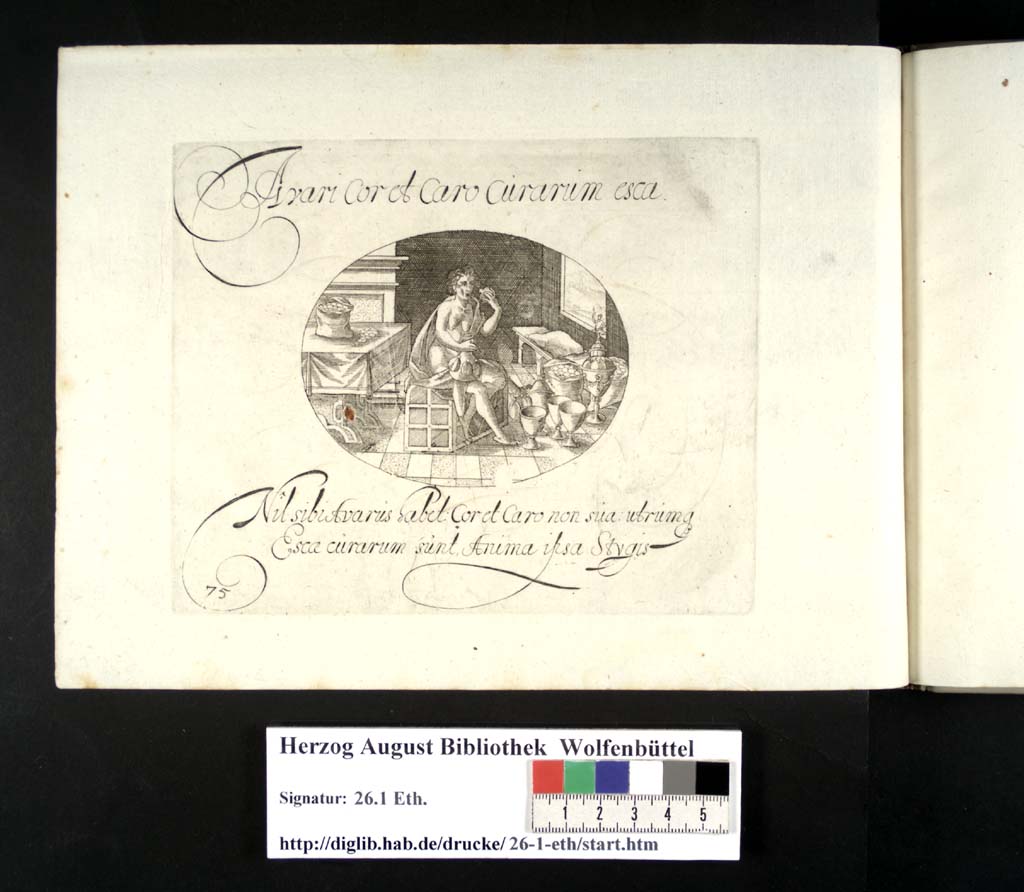 Avari Cor et Caro Curarum esca.
Nil sibi Avarus habet: Cor et Caro non sua: utrumq
Esca curarum sunt, Anima ipsa Stygis
75
Herzog August Bibliothek Wolfenbüttel
Signatur: 26.1 Eth.
1 2 3 4 5
http://diglib.hab.de/drucke/ 26-1-eth/start.htm